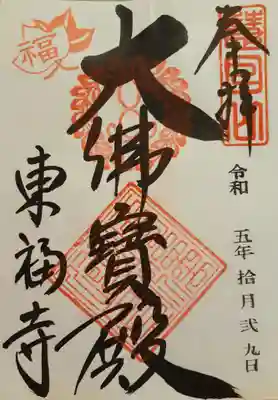 奉拝
令和 五年 拾月 弐 九日
大佛寳殿
東福寺
福